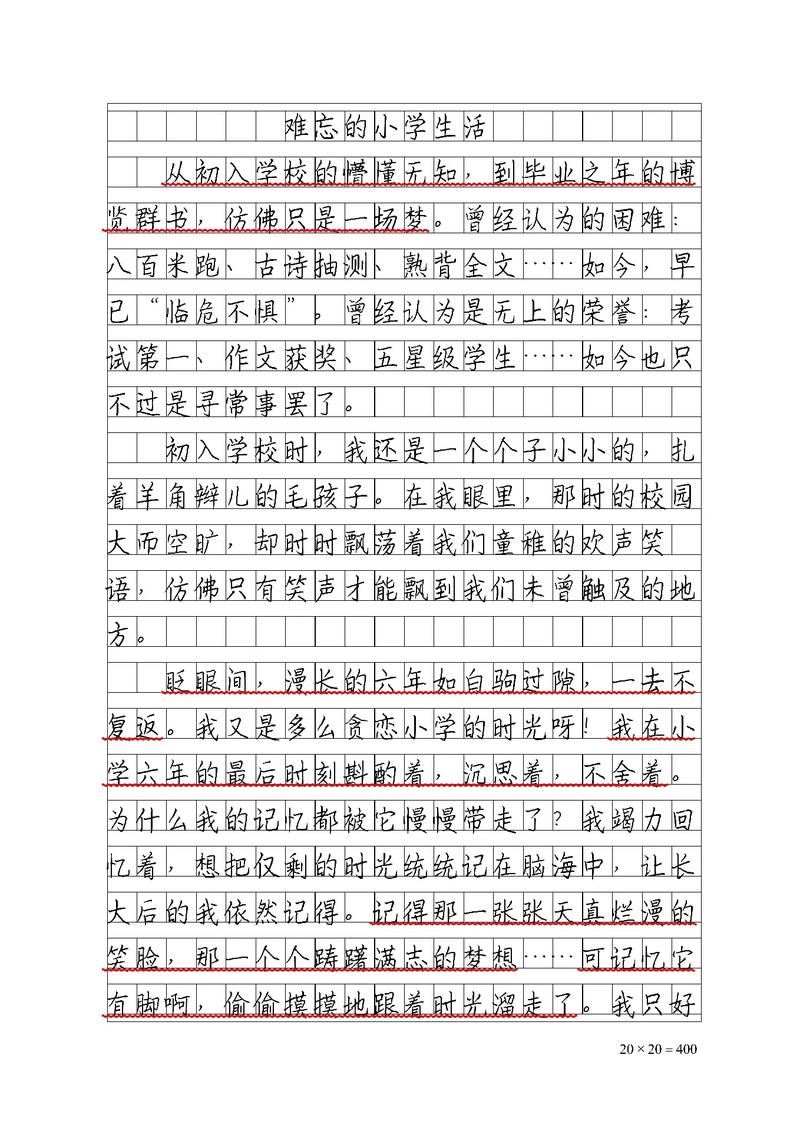 难忘的小学生活
从初入学校的懵懂无知，到毕业之年的博
览群书，仿佛只是一场梦。曾经认为的困难：
八百米跑、古诗抽测、熟背全文……如今，早
已“临危不惧”。曾经认为是无上的荣誉：考
试第一、作文获奖、五星级学生……如今也只
不过是寻常事罢了。
初入学校时，我还是一个个子小小的，扎
着羊角辫儿的毛孩子。在我眼里，那时的校园
大而空旷，却时时飘荡着我们童稚的欢声笑
语，仿佛只有笑声才能飘到我们未曾触及的地
方。
眨眼间，漫长的六年如白驹过隙，一去不
复返。我又是多么贪恋小学的时光呀！我在小
学六年的最后时刻斟酌着，沉思着，不舍着。
为什么我的记忆都被它慢慢带走了？我竭力回
忆着，想把仅剩的时光统统记在脑海中，让长
大后的我依然记得。记得那一张张天真烂漫的
笑脸，那一个个踌躇满志的梦想……可记忆它
有脚啊，偷偷摸摸地跟着时光溜走了。我只好
20×20=400